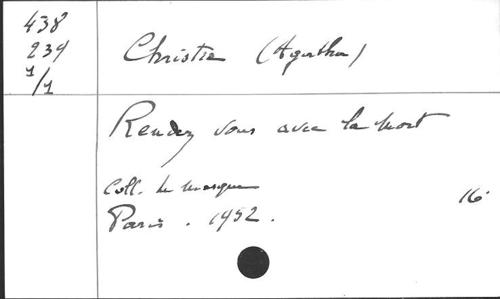 438
239
1/1
Christie (Agatha)
Rendez vous avec la mort
Coll. Le masque
16°
Paris. 1952.